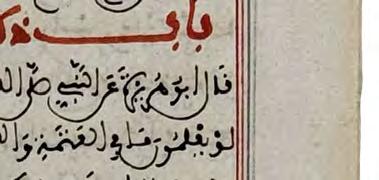 باب ذك
قال ابو هريرة عن النبي صلى ال
لو يعلمون ما في العتمة وال